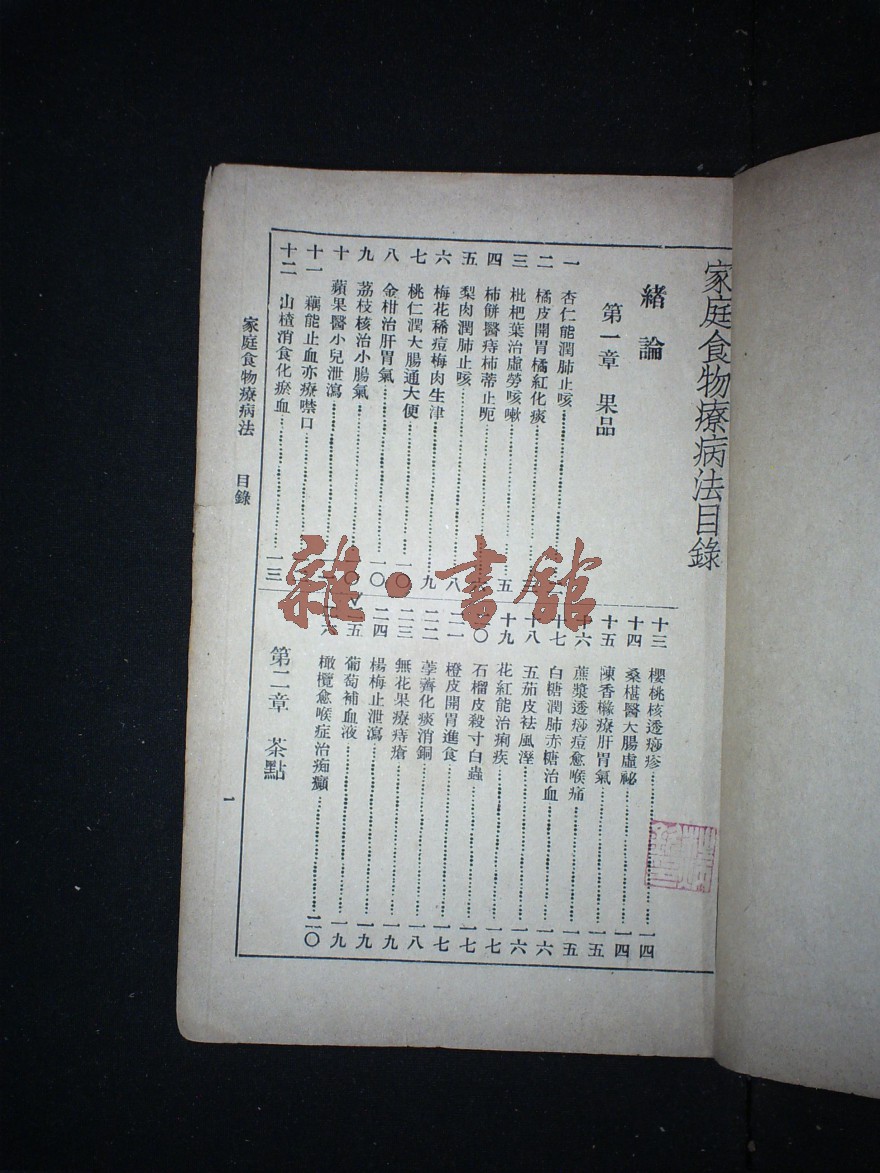 家庭食物療病法目錄
緒論
第一章　果品
一　杏仁能潤肺止咳
二　橘皮開胃橘紅化痰
三　枇杷葉治虛勞咳嗽　五
四　柿餅醫痔柿蒂止呃
五　梨肉潤肺止咳　八
六　梅花稀痘梅肉生津　九
七　桃仁潤大腸通大便　一〇
八　金柑治肝胃氣　一〇
九　荔枝核治小腸氣　一〇
十　蘋果醫小兒泄瀉
十一　藕能止血亦療噤口
十二　山楂消食化瘀血　一三
十三　櫻桃核透痧疹　一四
十四　桑椹醫大腸虛祕　一四
十五　陳香櫞療肝胃氣　一五
十六　蔗漿透痧痘愈喉痛　一五
十七　白糖潤肺赤糖治血　一六
十八　五茄皮祛風溼　一六
十九　花紅能治痢疾　一七
二〇　石榴皮殺寸白蟲　一七
二一　橙皮開胃進食　一七
二二　荸薺化痰消銅　一八
二三　無花果療痔瘡　一九
二四　楊梅止泄瀉　一九
二五　葡萄補血液　一九
二六　橄欖愈喉症治痴癲　二〇
第二章　茶點
家庭食物療病法　目錄
一
雜·書館